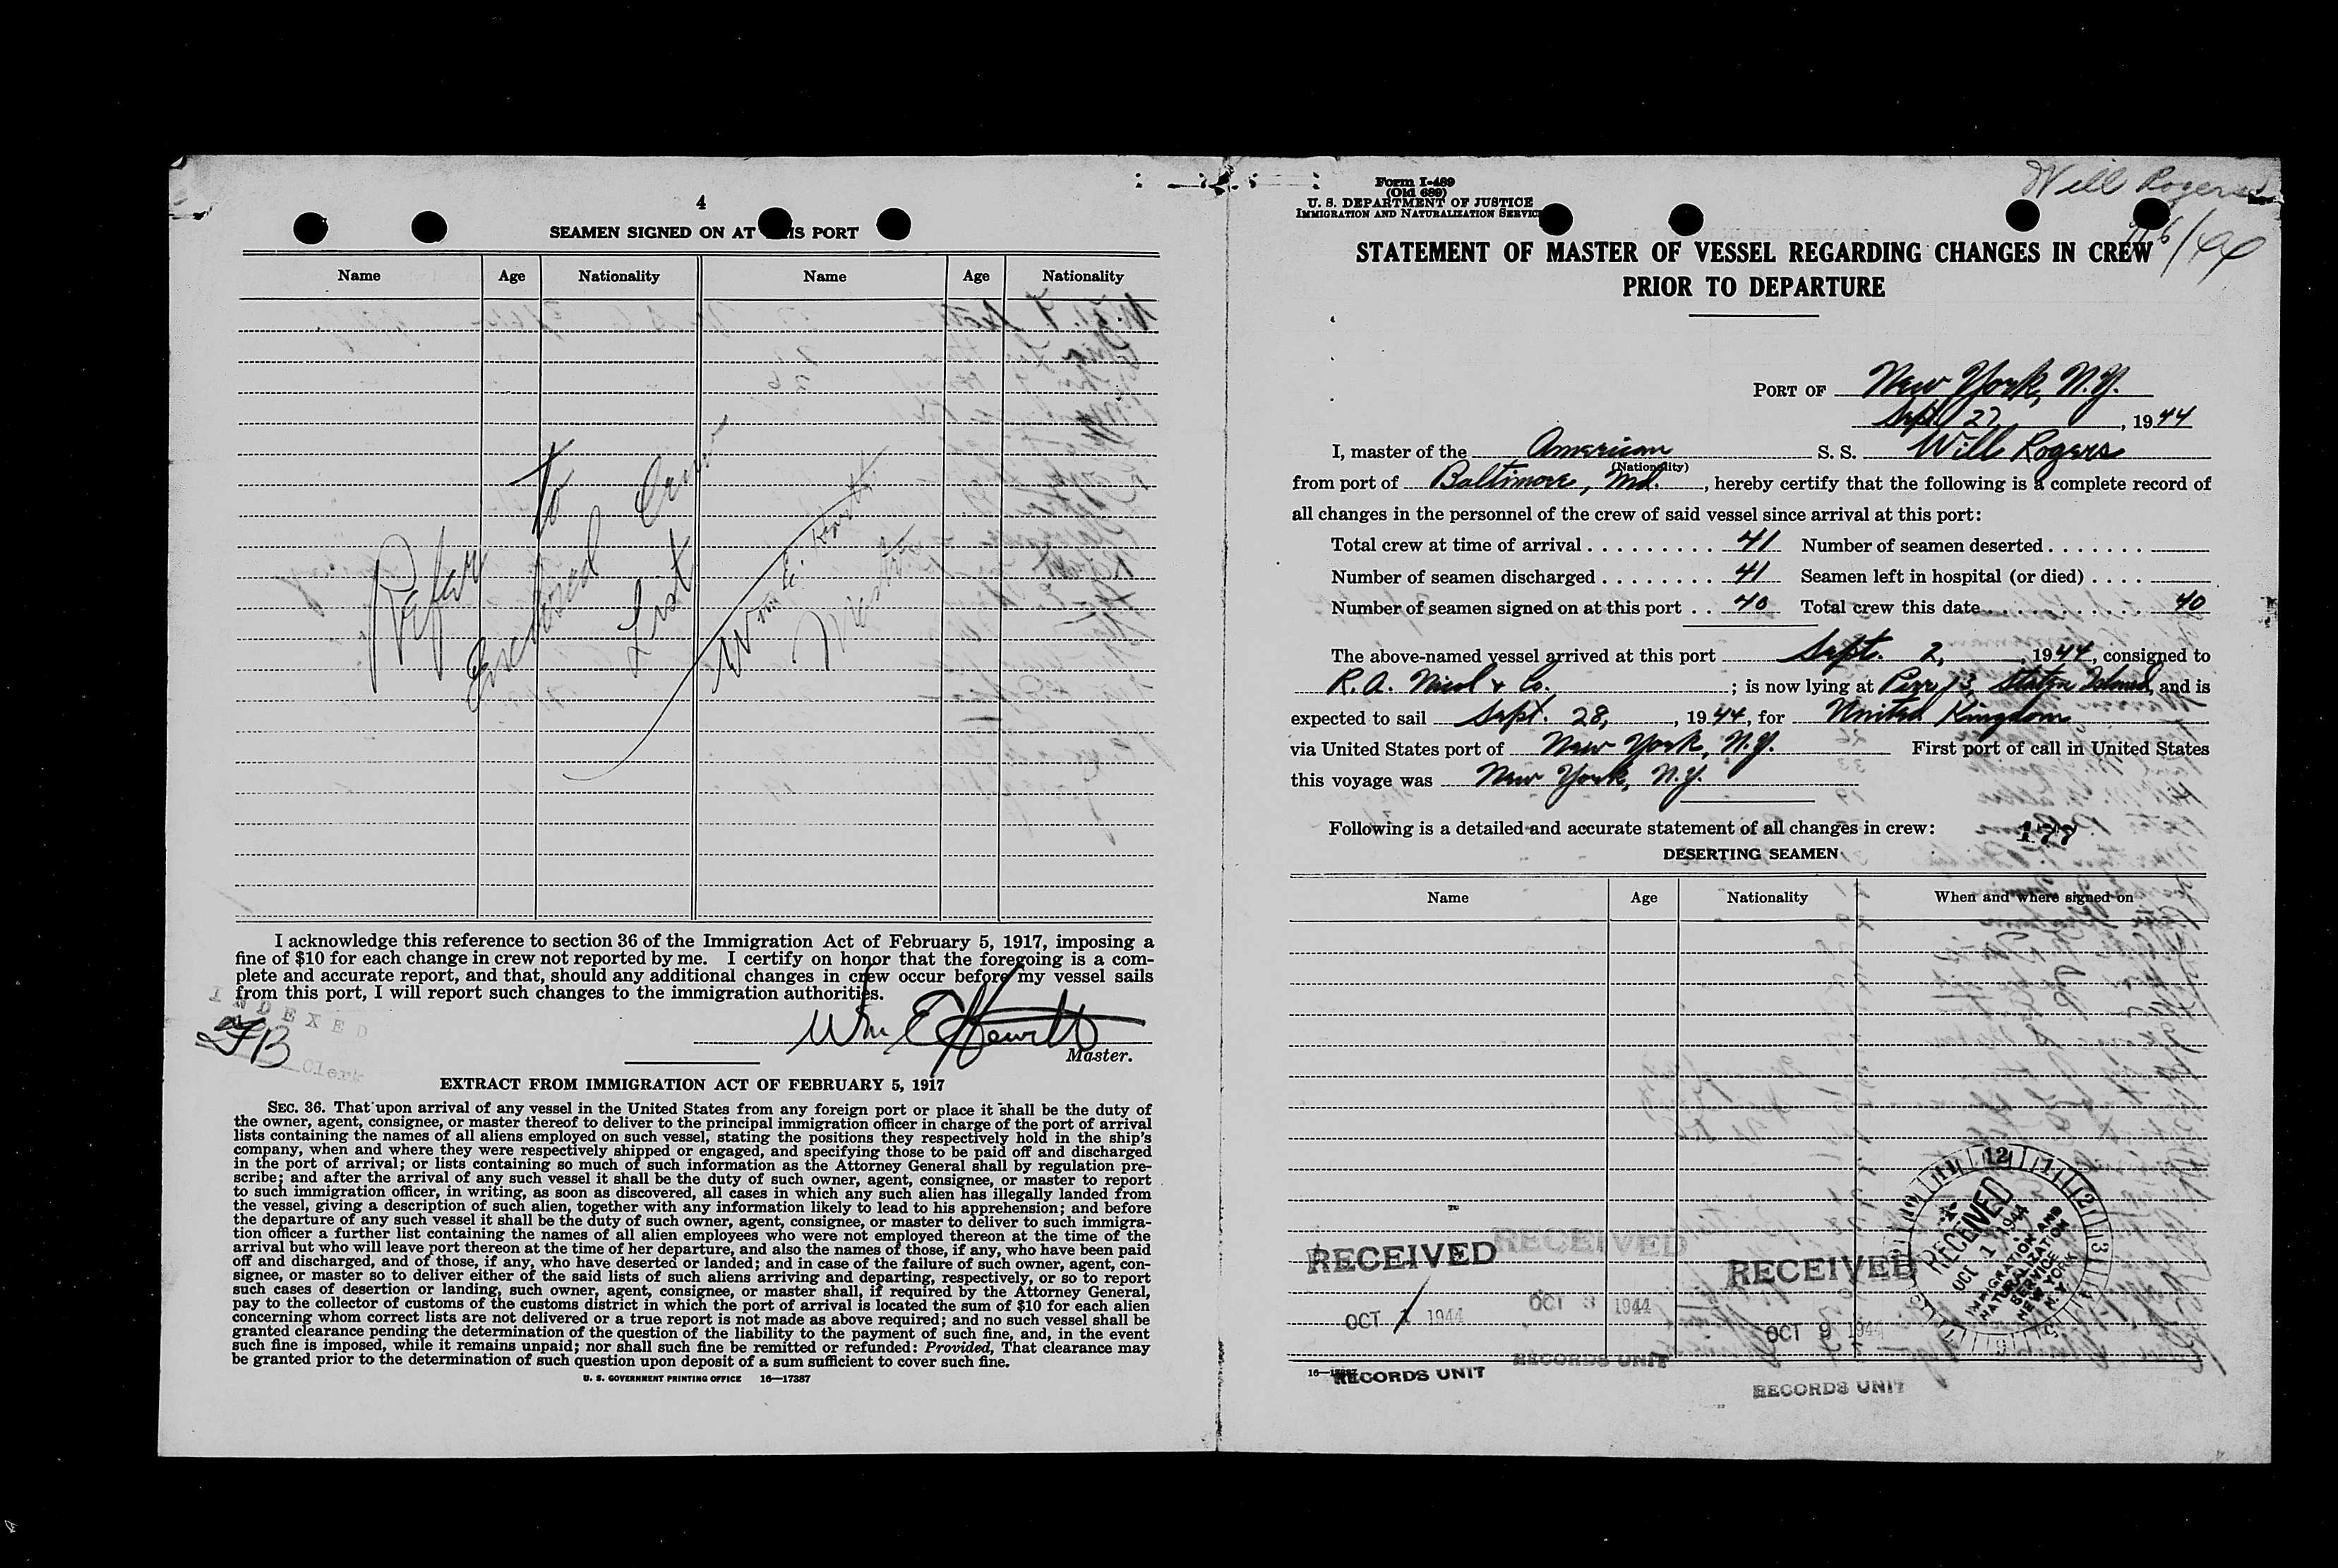 4
SEAMEN SIGNED ON AT THIS PORT
Name Age Nationality Name Age Nationality
Refer to
Enclosed Crew
List
Wm E. Hewitt
Master
I acknowledge this reference to section 36 of the Immigration Act of February 5, 1917, imposing a
fine of $10 for each change in crew not reported by me. I certify on honor that the foregoing is a com-
plete and accurate report, and that, should any additional changes in crew occur before my vessel sails
from this port, I will report such changes to the immigration authorities.
INDEXED
FB
Clerk
Wm E Hewitt
Master.
EXTRACT FROM IMMIGRATION ACT OF FEBRUARY 5, 1917
SEC. 36. That upon arrival of any vessel in the United States from any foreign port or place it shall be the duty of
the owner, agent, consignee, or master thereof to deliver to the principal immigration officer in charge of the port of arrival
lists containing the names of all aliens employed on such vessel, stating the positions they respectively hold in the ship's
company, when and where they were respectively shipped or engaged, and specifying those to be paid off and discharged
in the port of arrival; or lists containing so much of such information as the Attorney General shall by regulation pre-
scribe; and after the arrival of any such vessel it shall be the duty of such owner, agent, consignee, or master to report
to such immigration officer, in writing, as soon as discovered, all cases in which any such alien has illegally landed from
the vessel, giving a description of such alien, together with any information likely to lead to his apprehension; and before
the departure of any such vessel it shall be the duty of such owner, agent, consignee, or master to deliver to such immigra-
tion officer a further list containing the names of all alien employees who were not employed thereon at the time of the
arrival but who will leave port thereon at the time of her departure, and also the names of those, if any, who have been paid
off and discharged, and of those, if any, who have deserted or landed; and in case of the failure of such owner, agent, con-
signee, or master so to deliver either of the said lists of such aliens arriving and departing, respectively, or so to report
such cases of desertion or landing, such owner, agent, consignee, or master shall, if required by the Attorney General,
pay to the collector of customs of the customs district in which the port of arrival is located the sum of $10 for each alien
concerning whom correct lists are not delivered or a true report is not made as above required; and no such vessel shall be
granted clearance pending the determination of the question of the liability to the payment of such fine, and, in the event
such fine is imposed, while it remains unpaid; nor shall such fine be remitted or refunded: Provided, That clearance may
be granted prior to the determination of such question upon deposit of a sum sufficient to cover such fine.
U. S. GOVERNMENT PRINTING OFFICE 16—17387
Form I-489
(Old 689)
U. S. DEPARTMENT OF JUSTICE
IMMIGRATION AND NATURALIZATION SERVICE
Will Rogers
STATEMENT OF MASTER OF VESSEL REGARDING CHANGES IN CREW
PRIOR TO DEPARTURE
PORT OF New York, N.Y.
Sept 27, 1944
I, master of the American S. S. Will Rogers
(Nationality)
from port of Baltimore, Md., hereby certify that the following is a complete record of
all changes in the personnel of the crew of said vessel since arrival at this port:
Total crew at time of arrival 41 Number of seamen deserted
Number of seamen discharged 41 Seamen left in hospital (or died)
Number of seamen signed on at this port 40 Total crew this date 40
The above-named vessel arrived at this port Sept. 2, 1944, consigned to
R. A. Nicol & Co. ; is now lying at Pier 13, Staten Island, and is
expected to sail Sept. 28, 1944, for United Kingdom
via United States port of New York, N.Y. First port of call in United States
this voyage was New York, N.Y.
Following is a detailed and accurate statement of all changes in crew: 177
DESERTING SEAMEN
Name Age Nationality When and where signed on
RECEIVED
OCT 1 1944
RECORDS UNIT
RECEIVED
OCT 3 1944
RECORDS UNIT
RECEIVED
OCT 9 1944
RECORDS UNIT
RECEIVED
OCT 1 1944
IMMIGRATION AND
NATURALIZATION
SERVICE
NEW YORK
N. Y.